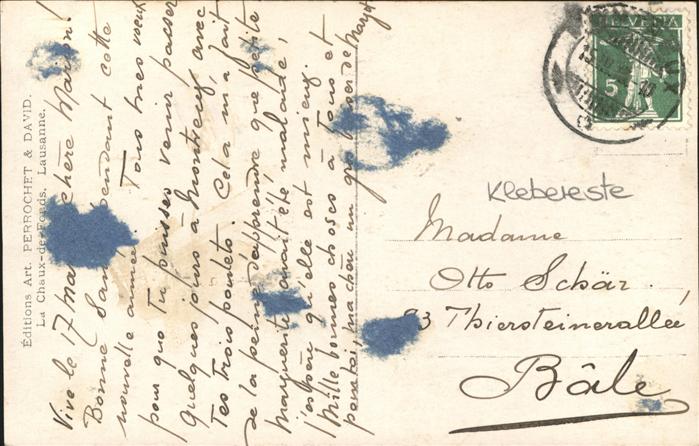 Éditions Art. PERROCHET & DAVID.
La Chaux-de-Fonds, Lausanne.
Vive le 17 mars chère Marion!
Bonne Santé pendant cette
nouvelle année. Tous mes vœux
pour que tu puisses venir passer
quelques jours à Montreux avec
tes trois poulets. Cela m'a fait
de la peine d'apprendre que petite
Marguerite avait été malade,
j'espère qu'elle est mieux.
Mille bonnes choses à tous et
pour toi, ma chère un gros baiser de
HELVETIA
5
Klebereste
Madame
Otto Schär.
23 Thiersteinerallée
Bâle